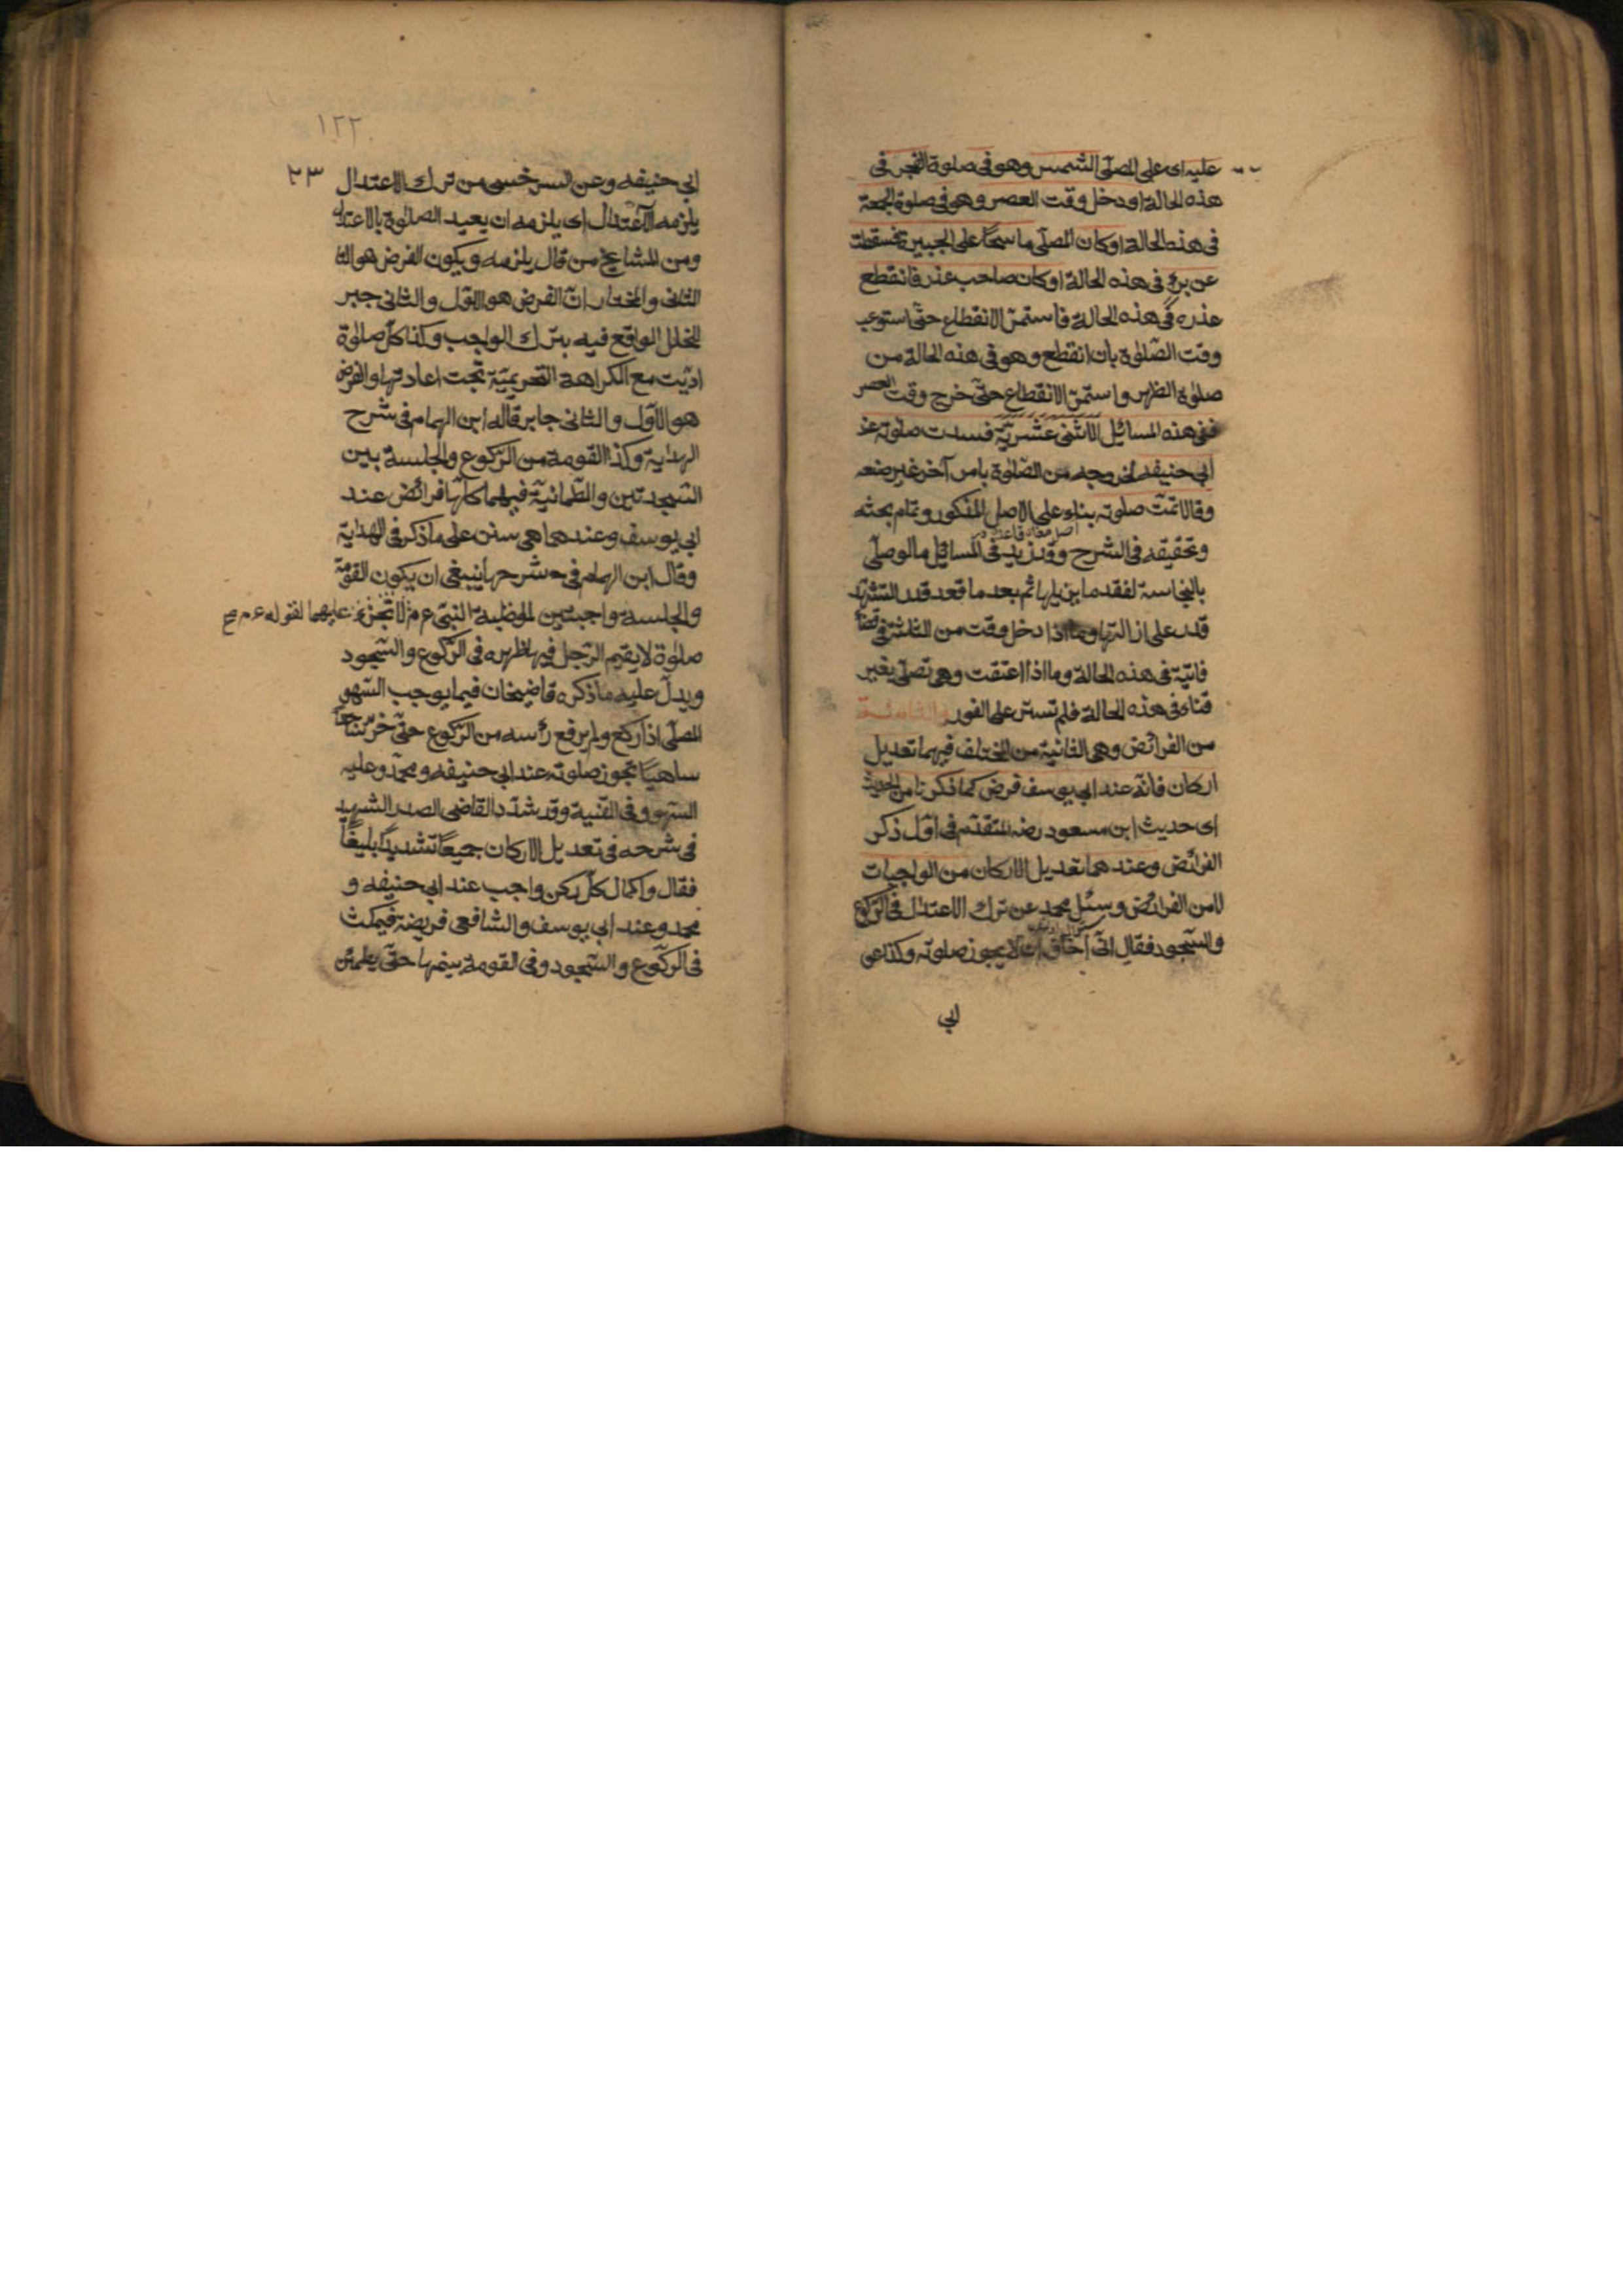 عليه اى على المصلّى الشمس وهو فى صلوة الفجر فى
هذه الحالة او دخل وقت العصر وهو فى صلوة الجمعة
فى هذه الحالة او كان المصلّى ماسحًا على الجبيرة فسقطت
عن برء فى هذه الحالة او كان صاحب عذر فانقطع
عذره فى هذه الحالة فاستمرّ الانقطاع حتّى استوعب
وقت الصّلوة بان انقطع وهو فى هذه الحالة من
صلوة الظهر واستمرّ الانقطاع حتّى خرج وقت العصر
ففى هذه المسائل الاثنى عشريّة فسدت صلوته عند
ابى حنيفه لخروجه من الصّلوة بامر آخر غير صنعه
وقالا تمّت صلوته بناء على الاصل المذكور وتمام بحثه
وتحقيقه فى الشرح وقد زيد فى المسائل ما لو صلّى
بالنجاسة لفقد ما يزيلها ثم بعد ما قعد قدر التشهّد
قدر على ازالتها وما اذا دخل وقت من الثلثة فى قضاء
فائتة فى هذه الحالة وما اذا اعتقت وهى تصلّى بغير
قناع فى هذه الحالة فلم تستر على الفور والثامنة
من الفرائض وهى الثانية من المختلف فيهما تعديل
اركان فانّه عند ابى يوسف فرض كما ذكرنا من الحديث
اى حديث ابن مسعود رضه المتقدّم فى اوّل ذكر
الفرائض وعندهما تعديل الاركان من الواجبات
لا من الفرائض وسئل محمد عن ترك الاعتدال فى الرّكوع
والسّجود فقال انّى اخاف ان لا يجوز صلوته وكذا عن
ابى
١٢٢
٢٣
ابى حنيفه وعن السرخسى من ترك الاعتدال
يلزمه الاعتدال اى يلزمه ان يعيد الصلوة بالاعتدال
ومن المشايخ من قال يلزمه ويكون الفرض هو الثا
الثانى والمختار انّ الفرض هو الاوّل والثانى جبر
للخلل الواقع فيه بترك الواجب وكذا كلّ صلوة
ادّيت مع الكراهة التحريميّة تجب اعادتها والفرض
هو الاوّل والثانى جابر قاله ابن الهمام فى شرح
الهداية وكذا القومة من الرّكوع والجلسة بين
السّجدتين والطّمانيّة فيهما كلّها فرائض عند
ابى يوسف وعندهما هى سنن على ما ذكر فى الهداية
وقال ابن الهمام فى شرحها ينبغى ان يكون القومة
والجلسة واجبتين للمواظبة النبىّ عم لا تجزئ عليهما لقوله عم صح
صلوة لا يقيم الرّجل فيها ظهره فى الرّكوع والسّجود
ويدلّ عليه ما ذكره قاضيخان فيما يوجب السّهو
المصلّى اذا ركع ولم يرفع رأسه من الرّكوع حتّى خرّ ساجدًا
ساهيًا تجوز صلوته عند ابى حنيفه ومحمّد وعليه
السّهو وفى القنية وقد شدّد القاضى الصدر الشهيد
فى شرحه فى تعديل الاركان جميعًا تشديدًا بليغًا
فقال واكمال كلّ ركن واجب عند ابى حنيفه و
محمد وعند ابى يوسف والشافعى فريضة فيمكث
فى الرّكوع والسّجود وفى القومة بينهما حتّى يطمئن